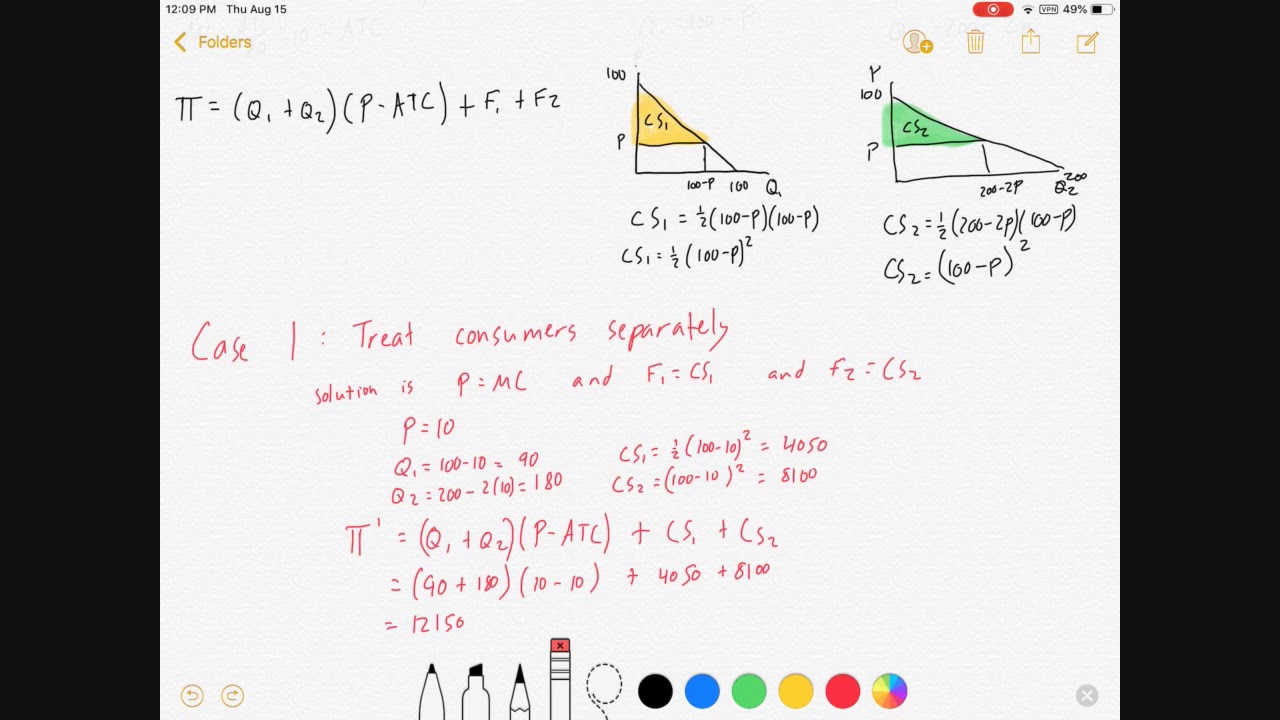 12:09 PM Thu Aug 15
VPN 49%
Folders
π = (Q₁ + Q₂)(P - ATC) + F₁ + F₂
100
CS₁
P
100-P 100 Q₁
CS₁ = ½(100-P)(100-P)
CS₁ = ½(100-P)²
P
100
CS₂
P
200-2P Q₂ 200
CS₂ = ½(200-2P)(100-P)
CS₂ = (100-P)²
Case 1 : Treat consumers separately
solution is P = MC and F₁ = CS₁ and F₂ = CS₂
P = 10
Q₁ = 100-10 = 90
Q₂ = 200-2(10) = 180
CS₁ = ½(100-10)² = 4050
CS₂ = (100-10)² = 8100
π' = (Q₁ + Q₂)(P-ATC) + CS₁ + CS₂
= (90 + 180)(10-10) + 4050 + 8100
= 12150